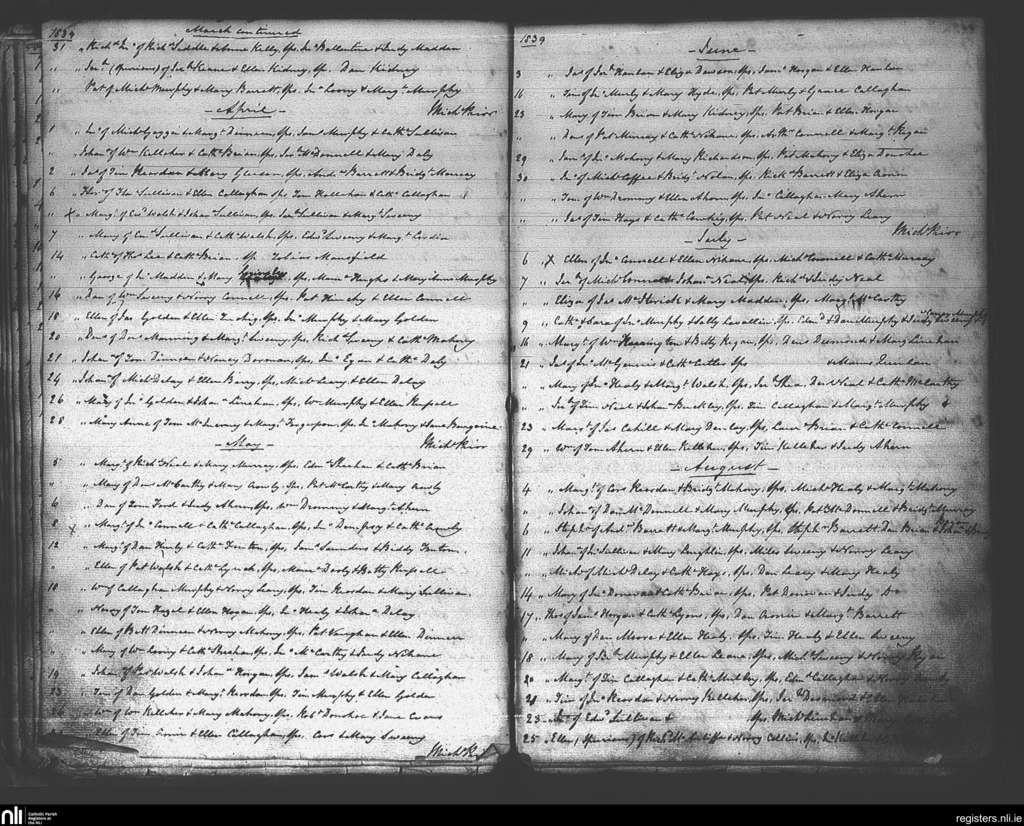 1839
March continued
31 " Rich.d Jn.o of Rich.d Liddle & Anne Kelly, Sps. Jn.o Ballentine & Judy Madden
" Jer.h (Spurious) of Jer.h Keane & Ellen Kidney, Sps. Dan Kidney
" Pat of Mich.l Murphy & Mary Barrett, Sps. Jn.o Leary & Marg.t Murphy
Mich.l Prior
- April -
1 " Jn.o of Mich.l Geoggan & Marg.t Dinneen, Sps. Jam.s Murphy & Cath.e Sullivan
" Johan.a of Wm Kelleher & Cath.e Brian, Sps. Jer.h McDonnell & Mary Daly
2 " Jas of Tim Reardon & Mary Gleeson, Sps. And.w Barrett & Bridg.t Murray
6 " Tho.s of Tho.s Sullivan & Ellen Callaghan Sps Tim Hallahan & Cath.e Callaghan
" X " Marg.t of Walsh & Johan.a Sullivan, Sps. Sullivan & Marg.t Sweeny
7 " Mary of Sullivan & Cath.e Walsh, Sps. Edw.d Sweeny & Marg.t
14 " Cath.e of Tho.s Lee & Cath.e Brian. Sp. Tobias Mansfield
" George of Jn.o Madden & Mary, Sps. Hughes & Mary Anne Murphy
16 " Dan of Wm Sweeny & Norry Connell, Sps. Pat & Ellen Connell
18 " Ellen of Jas Golden & Ellen, Sps. Jn.o Murphy & Mary Golden
20 " Denis of Den.s Manning & Marg.t Sweeny, Sps. Rich.d Sweeny & Cath.e Mahony
21 " Johan.a of Tom Dinneen & Nancy Dorman, Sps. Jn.o Egan & Cath.e Daly
24 " Johan.a of Mich.l Delay & Ellen Barry, Sps. Mich.l Leary & Ellen Delay
26 " Mary of Jn.o Golden & Johan.a Linehan, Sps. Wm Murphy & Ellen Russell
28 " Mary Anne of Tom McInerny & Marg.t Ferguson, Sps. Jn.o Mahony & Jane
Mich.l Prior
- May -
5 " Marg.t of Rich.d Neal & Mary Murray, Sps. Edm.d Sheehan & Cath.e Brian
" Mary of Den.s McCarthy & Mary Crowly, Sps. Pat McCarthy & Mary Crowly
6 " Dan of Tom Ford & Judy Ahern, Sps. Wm Dromony & Marg.t Ahern
8 X " Marg.t of Jn.o Connell & Cath.e Callaghan, Sps. Jn.o Dempsey & Cath.e Crowly
12 " Marg.t of Dan Hurly & Cath.e Fenton, Sps. Jam.s Saunders & Biddy Fenton
" Ellen of Pat Walsh & Cath.e Lynch, Sps. & Betty Russell
18 " Wm of Callaghan Murphy & Norry Leary, Sps. Tim Reardon & Mary Sullivan
" Norry of Tom Hazel & Ellen Hogan, Sps. Jn.o Healy & Johan.a Delay
" Ellen of Dinneen & Norry Mahony, Sps. Pat Vaughan & Ellen Dinneen
" Mary of Wm Leary & Cath.e Sheehan, Sps. Jn.o McCarthy & Judy Nihane
19 " Johan.a of Pat Walsh & Johan.a Horgan, Sps. Jam.s Walsh & Mary Callaghan
23 " Tim of Dan Golden & Marg.t Reardon, Sps. Tim Murphy & Ellen Golden
26 " Wm of Wm Kelleher & Mary Mahony, Sps. Rob.t Donohoe & Jane Evans
" Ellen of Tim Cronin & Ellen Callaghan, Sps. Cors & Mary Sweeny
Mich.l
1839
- June -
3 " Jas of Jer.h Hanlon & Eliza Dawson, Sps. Jam.s Horgan & Ellen Hanlon
16 " Tim of Jn.o Murly & Mary Hyde, Sps. Pat Murly & Callaghan
23 " Mary of Tom Brian & Mary Kidney, Sps. Pat Brian & Ellen Horgan
" Dan of Pat Murray & Cath.e Nihane, Sps. Connell & Marg.t Regan
29 " Jam.s of Jn.o Mahony & Mary Richardson, Sps. Pat Mahony & Eliza Donohoe
30 " Jn.o of Mich.l Coffee & Bridg.t Nolan, Sps. Rich.d Barrett & Eliza Cronin
" Tom of Wm Dromony & Ellen Ahern, Sps. Jn.o Callaghan, Mary Ahern
" Jas of Tom Hays & Cath.e, Sps. Pat Neal & Norry Leary
Mich.l Prior
- July -
6 " X Ellen of Jn.o Connell & Ellen Nihane, Sps. Mich.l Connell & Cath.e Murray
7 " Jer.h of Mich.l & Johan.a Neal, Sps. Rich.d & Judy Neal
" Eliza of Jas McKevick & Mary Madden, Sps. Marg.t McCarthy
9 " Cath.e & Sara of Jn.o Murphy & Sally Lavallin, Sps. Edm.d & Dan Murphy & Judy
16 " Marg.t of Wm Harrington & Betty Regan, Sps. Denis Desmond & Mary Linehan
21 " Jas of Jn.o McGennis & Cath.e Cutler Sps & Mary Quinlan
" Mary of Jn.o Healy & Marg.t Walsh, Sps. Jer.h Shea, Den.s Neal & Cath.e McCarthy
" Jer.h of Tim Neal & Johan.a Buckley, Sps. Tim Callaghan & Marg.t Murphy
23 " Marg.t of Jas Cahill & Mary Dorley, Sps. Laur.e Brian & Cath.e Connell
29 " Wm of Tom Ahern & Ellen Kelleher, Sps. Tim Kelleher & Judy Ahern
- August -
4 " Marg.t of Cors Reardon & Bridg.t Mahony, Sps. Mich.l Healy & Marg.t Mahony
" Johan.a of Dan McDonnell & Mary Murphy, Sps. Pat McDonnell & Bridg.t Murray
6 " Steph.n of And.w Barrett & Marg.t Murphy, Sps. Steph.n Barrett Dan Brian &
11 " Johan.a of Jn.o Sullivan & Mary Laughlin, Sps. Miles Sweeny & Norry Leary
" Mich.l of Mich.l Delay & Cath.e Hays, Sps. Dan Leary & Mary Healy
14 " Mary of Jn.o Donovan & Cath.e Brian, Sps. Pat Donovan & Judy Do
17 " Tho.s of Jam.s Horgan & Cath.e Lyons, Sps. Dan Cronin & Marg.t Barrett
" Mary of Dan Moore & Ellen Healy, Sps. Tim Healy & Ellen Sweeny
18 " Mary of Murphy & Ellen Leane, Sps. Mich.l Sweeny & Norry Regan
20 " Marg.t of Tim Callaghan & Cath.e, Sps. Edm.d Callaghan & Norry
21 " Tim of Jn.o Reardon & Norry Kelleher, Sps. Jer.h Desmond & Ellen
23 " of Edw.d Sullivan & Sps. Mich.l Linehan &
25 " Ellen (Spurious) of & Norry Collins, Sps.
nli
Catholic Parish
Registers at
the NLI
registers.nli.ie